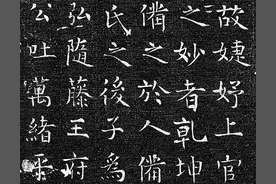 故婕妤上官
之妙者乾坤
備之於人備
氏之後子為
弘隨藤王府
公吐萬緒平